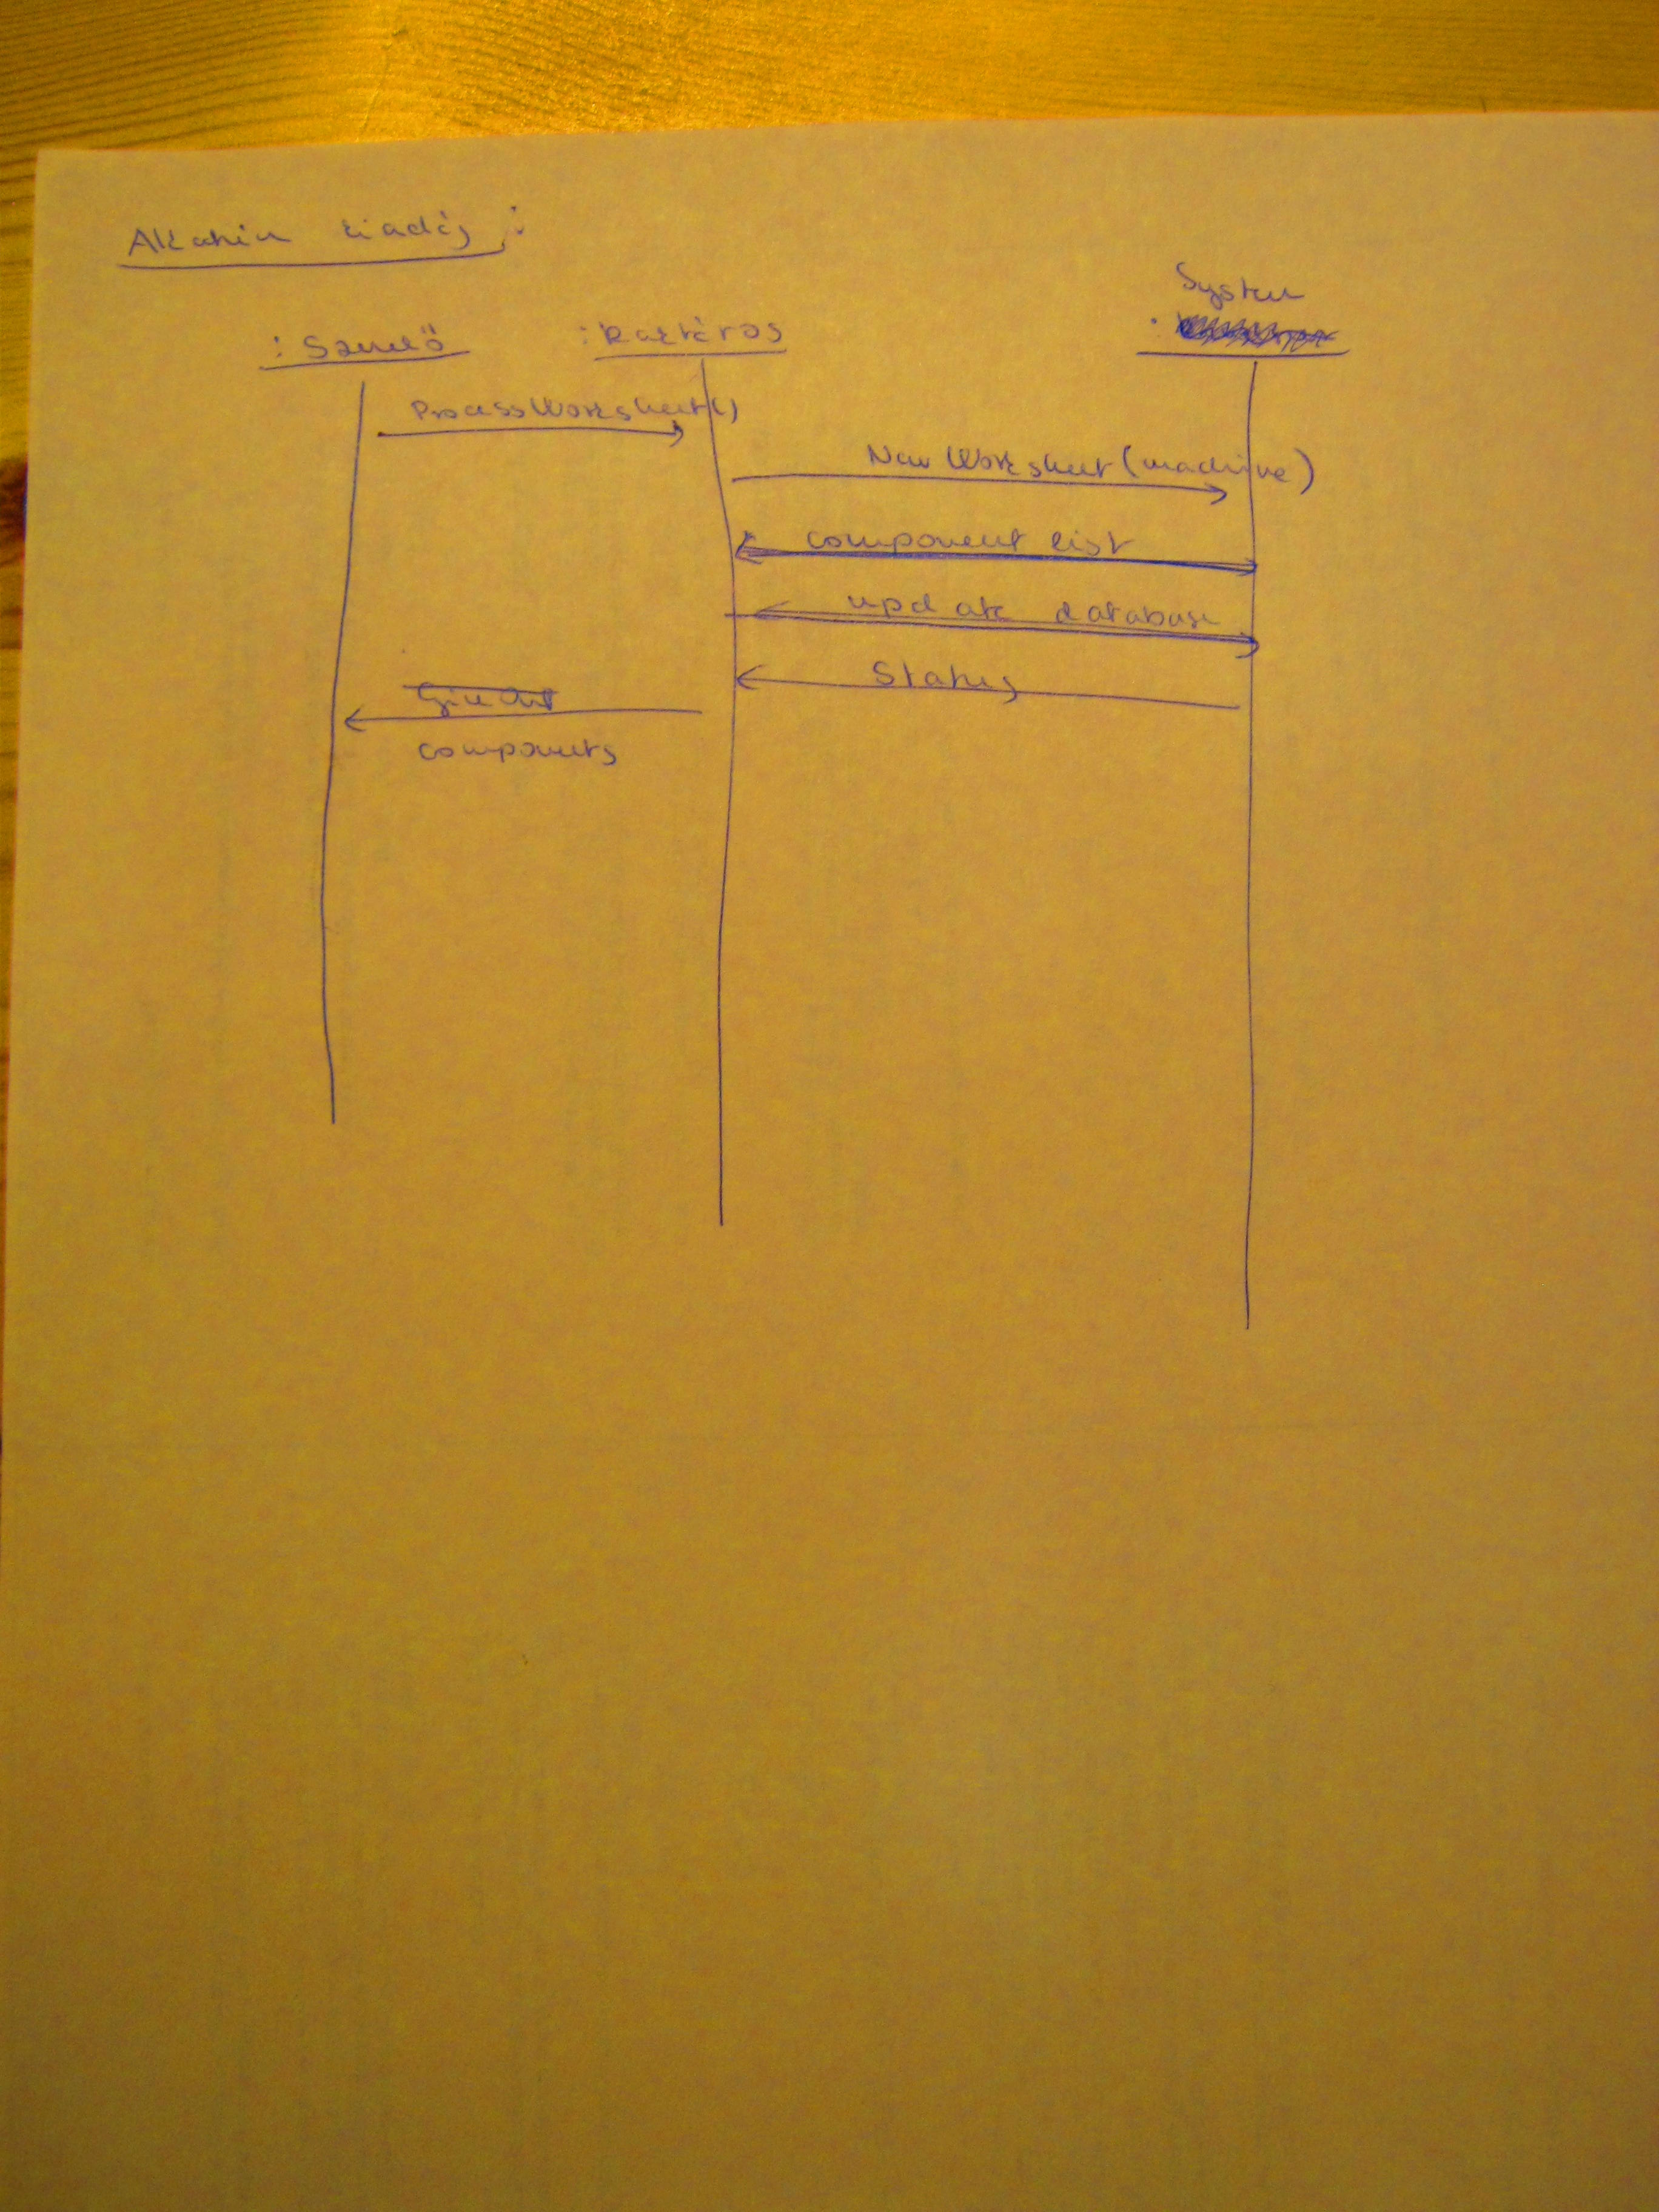 Alkatrész kiadás:
:Szerelő :Raktáros System
ProcessWorksheet()
New Worksheet(machine)
component list
update database
Status
Give Out
components